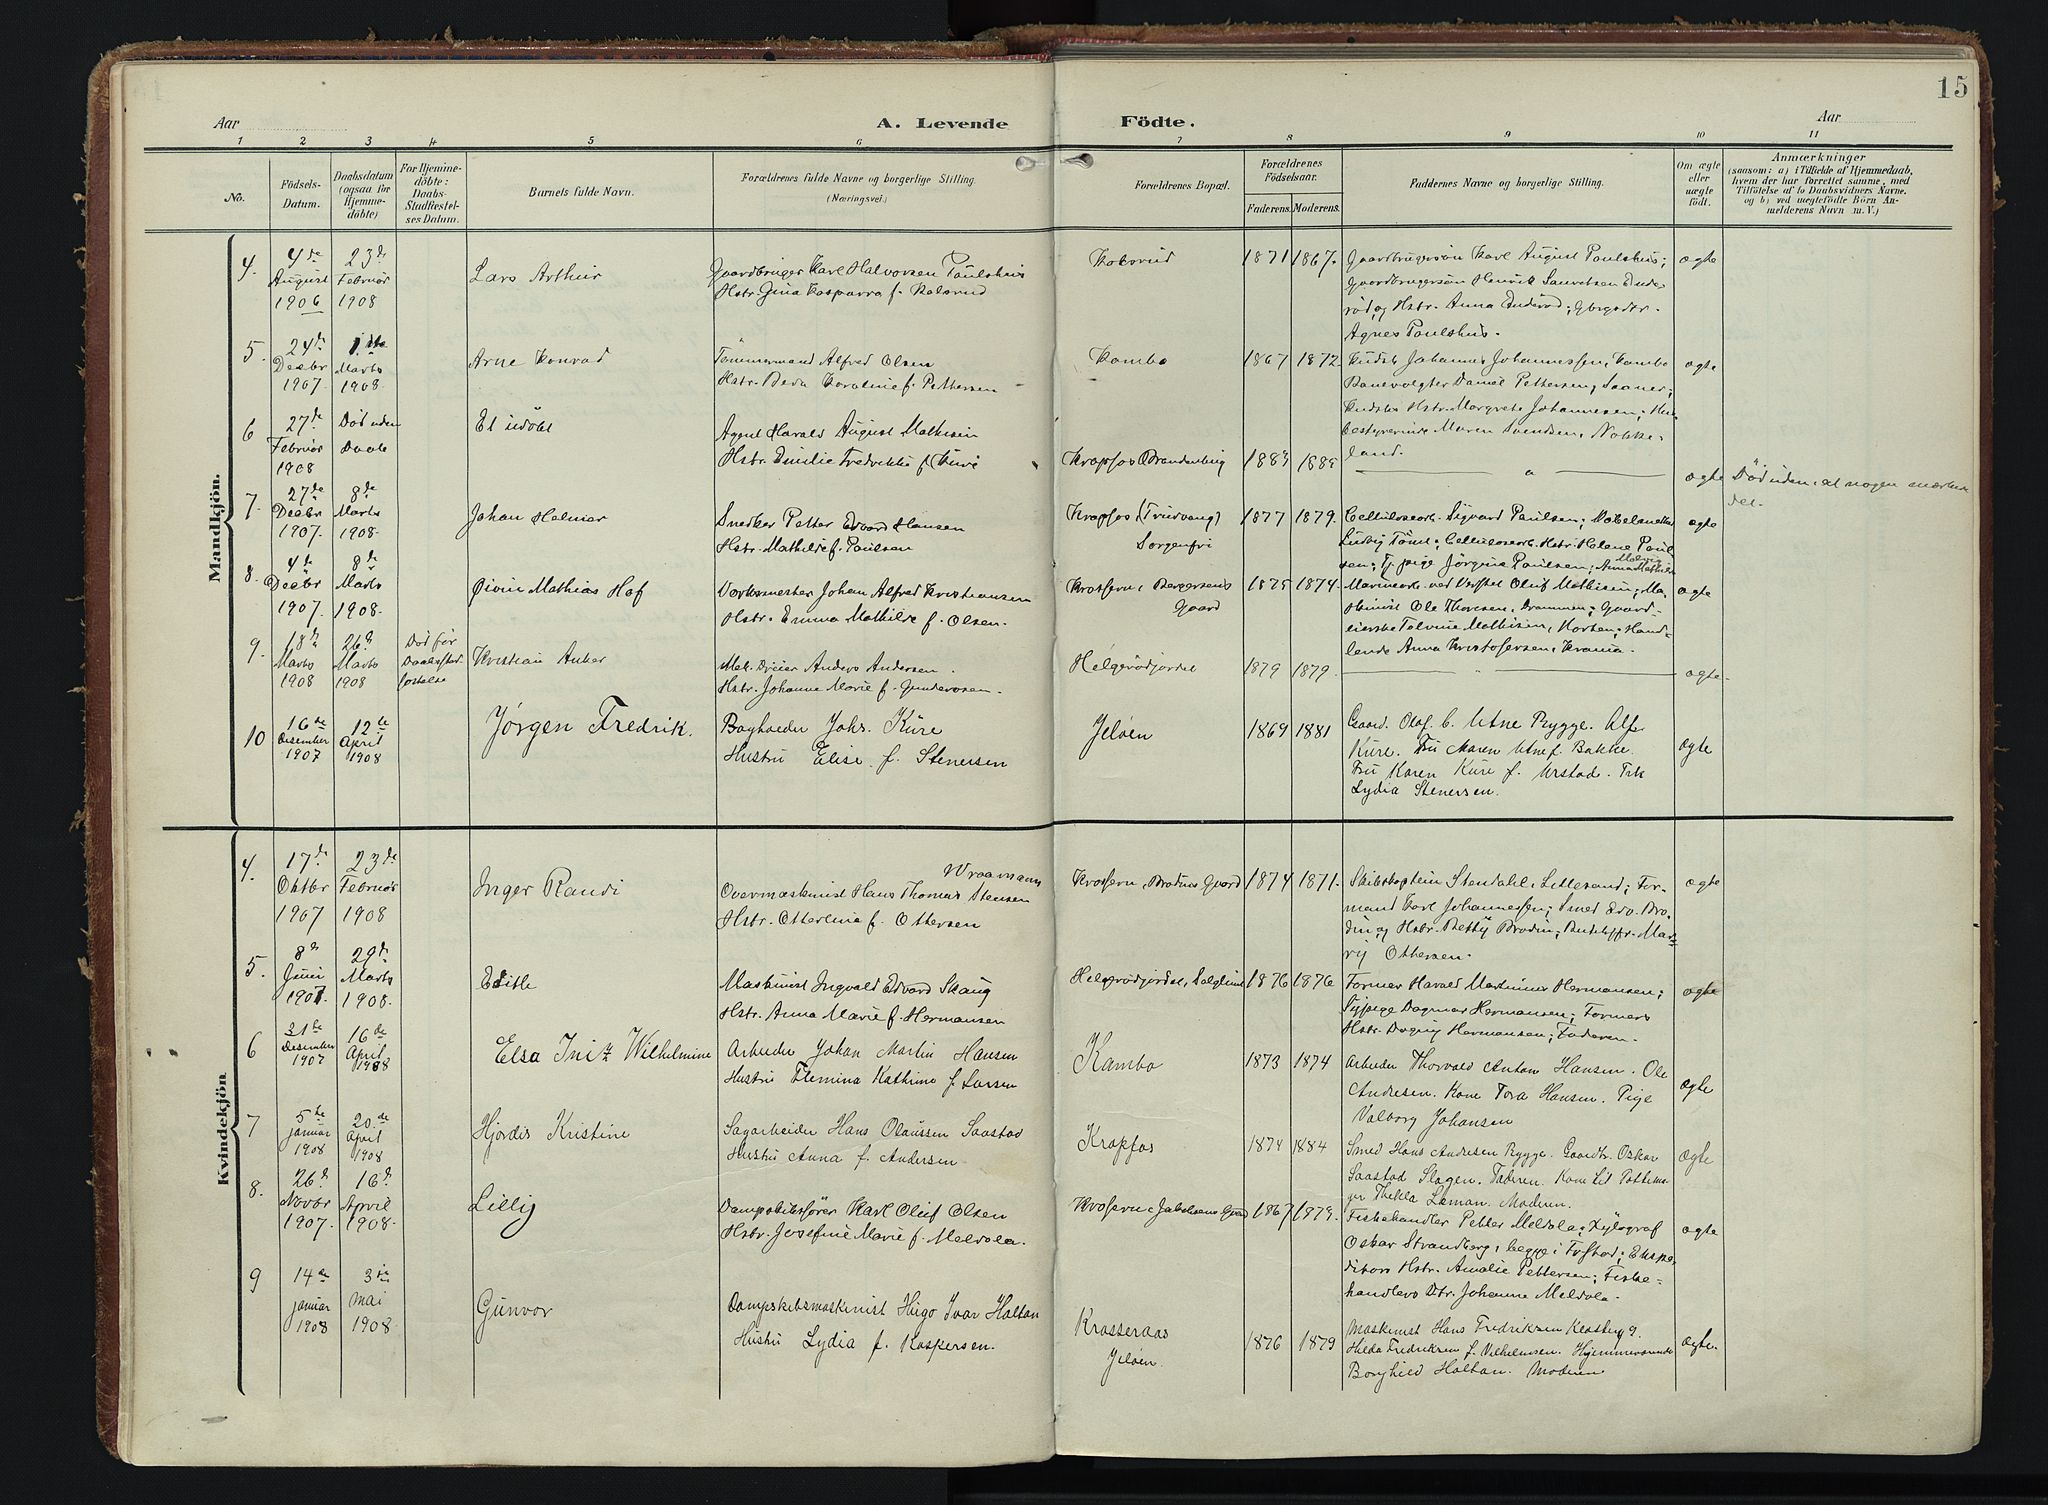 15
Aar
A. Levende Födte.
Aar
1 2 3 4 5 6 7 8 9 10 11
No.
Födsels-
Datum.
Daabsdatum
(ogsaa for
Hjemme-
döbte)
For Hjemme-
döbte:
Daabs-
Stadfæstel-
ses Datum.
Barnets fulde Navn.
Forældrenes fulde Navne og borgerlige Stilling.
(Næringsvei.)
Forældrenes Bopæl.
Forældrenes
Födselsaar.
Faderens. Moderens.
Faddernes Navne og borgerlige Stilling.
Om ægte
eller
uægte
födt.
Anmærkninger
(saasom: a) i Tilfælde af Hjemmedaab,
hvem der har forrettet samme, med
Tilföielse af to Daabsvidners Navne.
og b) ved uægtefödte Börn An-
melderens Navn m. V.)
Mandkjön.
4.
4de
August
1906
23de
Februar
1908
Lars Arthur
Gaardbruger Karl Halvorsen Paulshus
Hstr. Gina Kasparra f. Kolsrud
Kolsrud
1871 1867.
Gaardbrugersön Karl August Paulshus;
Gaardbrugersön Henrik Lauretsen Ende-
röd, og Hstr. Anna Enderöd;
Agnes Paulshus.
ægte
5.
24de
Decbr
1907
1ste
Marts
1908.
Arne Konrad
Tömmermand Alfred Olsen
Hstr. Karoline f. Pettersen
Kambo
1867 1872
Johannes Johannessen, Kambo
Banevogter Daniel Pettersen, Saaner;
Hstr. Margrete Johannesen;
bestyrerinde Maren Svendsen, Nokke-
land.
ægte
6
27de
Februar
1908
Död uden
Daab
Et udöbt
Agent Harald August Mathisen
Hstr. Emilie Fredrikke f. Kure
Krapfos Brandenburg
1883 1885
ægte
Död uden, at nogen mærkede
det.
7.
27de
Decbr
1907
8de
Marts
1908.
Johan Helmer
Snedker Petter Edvard Hansen
Hstr. Mathilde f. Paulsen
Krapfos (Trudvang)
Sorgenfri
1877 1879.
Cellulosearb. Sigvard Paulsen;
Ludvig; Cellulosearb. Hstr. Helene Paul-
sen; Tj. pige Jørgine Paulsen;
ægte
8.
4de
Decbr
1907
8de
Marts
1908.
Øivin Mathias Hof
Værksmester Johan Alfred Kristiansen
Hstr. Emma Mathilde f. Olsen.
Krossern, Bergersens
Gaard
1875 1874.
Marinearb. ved Verftet Oluf Mathisen; Ma-
skinist Ole Thoresen, Drammen; Gaard-
eierske Mathisen, Horten; Hand-
lende Anna Kristofersen, Krania.
ægte
9.
18de
Marts
1908
26de
Marts
1908
Död för
Daabsstad-
fæstelse
Kristian Anker
Mek. Dreier Anders Andersen.
Hstr. Johanne Marie f. Gundersen.
Helgerödjordet
1879 1879.
ægte.
10
16de
Desember
1907
12te
April
1908
Jørgen Fredrik.
Johs. Kure
Hustru Elise f. Stenersen
Jeløen
1869 1881
Gaard. Olaf C. Utne Rygge. Alf
Kure. Fru Maren Utne f. Bakke.
Fru Karen Kure f. Urstad. Frk
Lydia Stenersen.
ægte
Kvindekjön
4.
17de
Oktbr
1907
23de
Februar
1908
Inger Randi
Wraamann
Overmaskinist Hans Thomas Stensen
Hstr. Otterline f. Ottersen
Krossern, Brodins Gaard
1874 1871.
Skibskaptein Stendahl, Lillesand; For-
mand Karl Johannessen; Smed Edv. Bro-
din, og Hstr. Betty Brodin; Mar-
ry Ottersen.
ægte
5.
8de
Juni
1907
29de
Marts
1908.
Edith
Maskinist Ingvald Edvard Skaug
Hstr. Anna Marie f. Hermansen
Helgerödjordet, Solglimt
1876 1876
Former Harald Martinius Hermansen;
Sypige Dagmar Hermansen; Formers
Hstr. Dagny Hermansen; Faderen.
ægte
6
31te
Desember
1907
16de
April
1908
Elsa Wilhelmine
Arbeider Johan Martin Hansen
Hustru Flemina Kathrine f. Larsen
Kambo
1873 1874
Arbeider Thorvald Anton Hansen. Ole
Andresen. Kone Tora Hansen. Pige
Valborg Johansen
ægte
7
5te
januar
1908
20de
April
1908
Hjordis Kristine
Sagarbeider Hans Olaussen Saastad
Hustru Anna f. Andersen
Krapfos
1874 1884
Smed Hans Andresen Rygge. Gaardbr. Oskar
Saastad Slagen. Faderen. Kone
Thekla Leman. Moderen.
ægte
8.
26de
Novbr
1907.
16de
April
1908.
Lilly
Dampskibsförer Karl Oluf Olsen
Hstr. Josefine Marie f. Meldola.
Krossern, Jakobsens Gaard
1867 1879.
Fiskehandler Petter Meldola; Xylograf
Oskar Strandberg, begge i F.stad; Ekspe-
ditörs Hstr. Amalie Pettersen; Fiske-
handlers Dtr. Johanne Meldola.
ægte
9
14de
januar
1908
3die
mai
1908
Gunvor
Dampskibsmaskinist Hugo Ivar Holtan
Hustru Lydia f. Kaspersen.
Krosseraas
Jeløen.
1876 1879
Maskinist Hans Fredriksen
Hilda Fredriksen f. Vilhelmsen. Hjemmeværende
Borghild Holtan. Moderen
ægte.